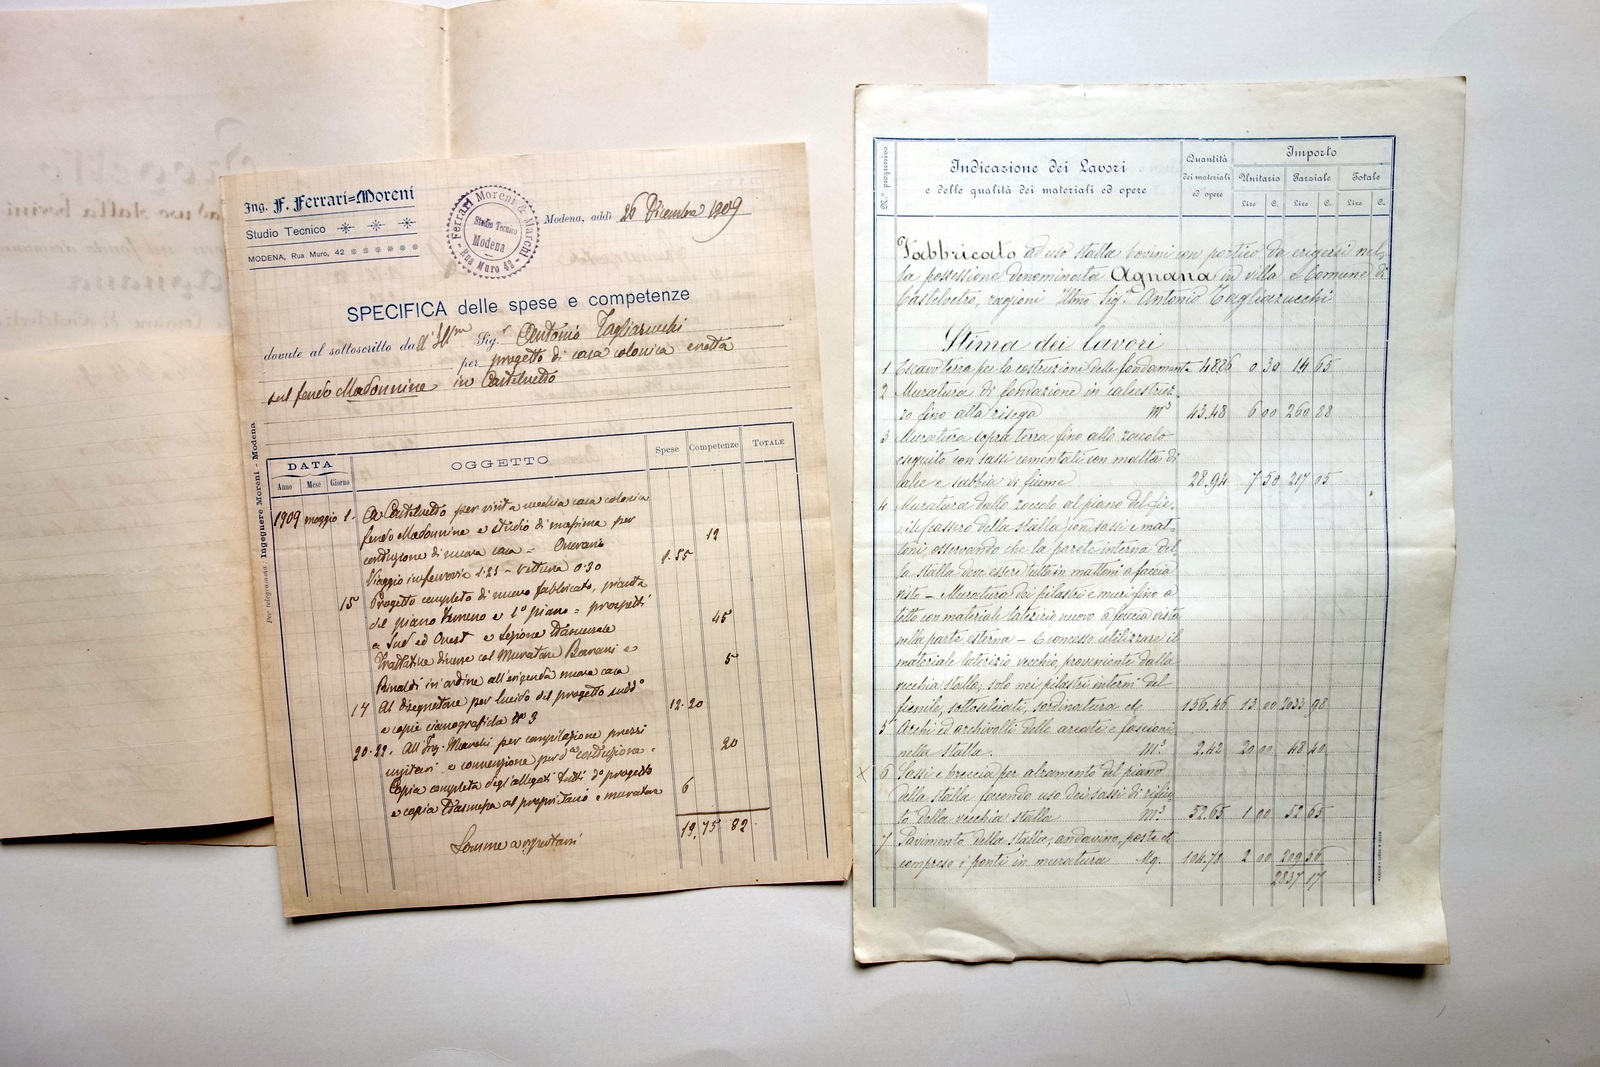 Ing. F. Ferrari=Moreni
Studio Tecnico
MODENA, Rua Muro, 42
Ferrari Moreni & Marchi
Studio Tecnico
Modena
Rua Muro 42
Modena, addì 26 Dicembre 1909
SPECIFICA delle spese e competenze
dovute al sottoscritto dall'Ill.mo Sig.r Antonio Tagliazucchi
per progetto di casa colonica eretta
sul fondo Madonnine in Castelvetro
Per telegrammi Ingegnere Moreni - Modena
DATA OGGETTO Spese Competenze TOTALE
Anno Mese Giorno
1909 maggio 1. A Castelvetro per visita vecchia casa colonica
fondo Madonnine e studio di massima per
costruzione di nuova casa = Onorario 12
Viaggio in ferrovia 1.25 - vettura 0.30 1.55
15 Progetto completo di nuovo fabbricato, pianta
del piano terreno e 1° piano = prospetti
a Sud ed Ovest e sezione trasversale 45
Trattative diverse col Muratore e
Rinaldi in ordine all'erigenda nuova casa 5
17 Al disegnatore per lucido del progetto sudd°
e copie cianografiche N° 3 12.20
20-22. All'Ing. Marchi per compilazione prezzi
unitari e convenzione per da costruzione. 20
Copia completa degli allegati tutti d° progetto
e copia trasmessa al proprietario e muratore 6
19,75 82.
Somme a riportarsi
N.° progressivo
Indicazione dei Lavori
e delle qualità dei materiali ed opere
Quantità
dei materiali
ed opere
Importo
Unitario Parziale Totale
Lire C. Lire C. Lire C.
Fabbricato ad uso stalla bovini con portico da erigersi nel-
la possessione denominata Agnana in villa e Comune di
Castelvetro, ragioni Illmo Sig.r Antonio Tagliazucchi
Stima dei lavori
1 Escavo terra per la costruzione delle fondamenta 48.86 0 30 14 65
2 Muratura di fondazione in calcestruz-
zo fino alla risega M³ 43.48 6 00 260 88
3 Muratura sopra terra fino allo zoccolo
eseguito con sassi cementati con malta di
calce e sabbia di fiume 28.94 7 50 217 05
4 Muratura dallo zoccolo al piano del fie-
nile passare della stalla con sassi e mat-
toni, osservando che la parete interna del
la stalla deve essere tutta in mattoni a faccia
vista - Muratura dei pilastri e muri fino a
tetto con materiale laterizio nuovo a faccia vista
nella parte esterna - È concesso utilizzare il
materiale laterizio vecchio, proveniente dalla
vecchia stalla, solo nei pilastri interni del
fienile, sottoscivoli, sordinatura etc 156.46 13 00 2033 98
5 Archi ed archivolti delle arcate e fascioni
nella stalla. M³ 2.42 20 00 48 40
X 6 Sassi e breccia per alzamento del piano
della stalla facendo uso dei sassi di rifiu-
to della vecchia stalla M³ 52.65 1 00 52 65
7 Pavimento della stalla, andavino, poste etc
compreso i ponti in muratura Mq. 104.78 2 00 209 56
2837 17